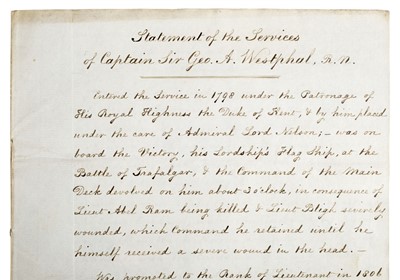 Statement of the Services
of Captain Sir Geo. A. Westphal, R.N.
Entered the Service in 1798 under the Patronage of
His Royal Highness the Duke of Kent, & by him placed
under the care of Admiral Lord Nelson; – was on
board the Victory, his Lordship's Flag Ship, at the
Battle of Trafalgar, & the Command of the Main
Deck devolved on him about 3 o'clock, in consequence of
Lieut Abel Ram being killed & Lieut Bligh severely
wounded, which Command he retained until he
himself received a severe wound in the head. –
Was promoted to the Rank of Lieutenant in 1806